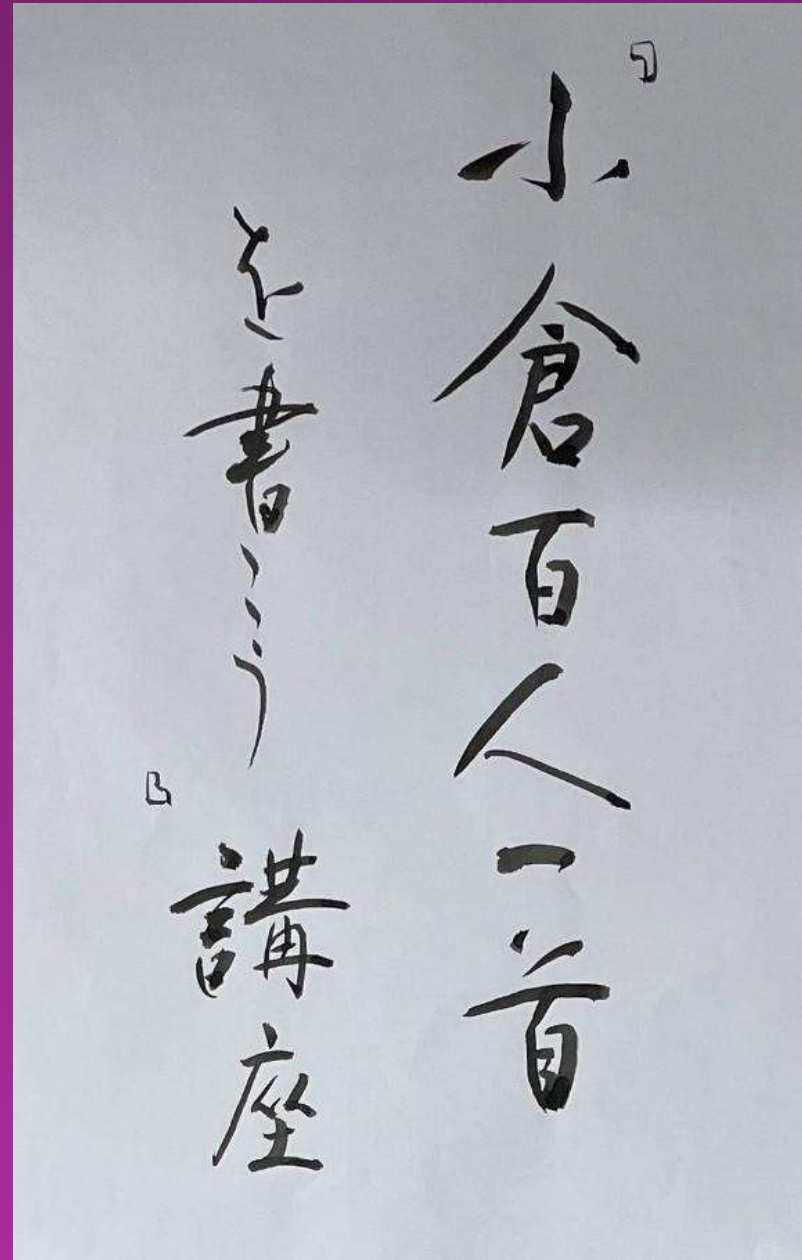 『小倉百人一首
を書こう』講座